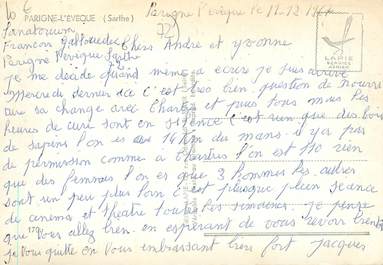 PARIGNE-L'EVEQUE (Sarthe)
Parigné l'évêque le 11-12
Sanatorium
François Gallouedec Chers André et yvonne
Parigné l'évêque Sarthe
je me décide quand même a ecrire je suis arrivé
Mercredi dernier ici c'est très bien question de nourri
ture sa change avec Chartres et puis tous mais les
heures de cure sont en silence c'est rien que des bois
de sapins l'on es a 14 Km du mans il ya pas
de permission comme a chartres l'on est 110 rien
que des femmes l'on es que 3 hommes les autres
sont un peu plus loin c'est plusque plein seance
de cinema et théatre toutes les semaines je pense
que vous allez bien en esperant de vous revoir bientôt
je vous quitte en vous embrassant bien fort Jacques
LAPIE